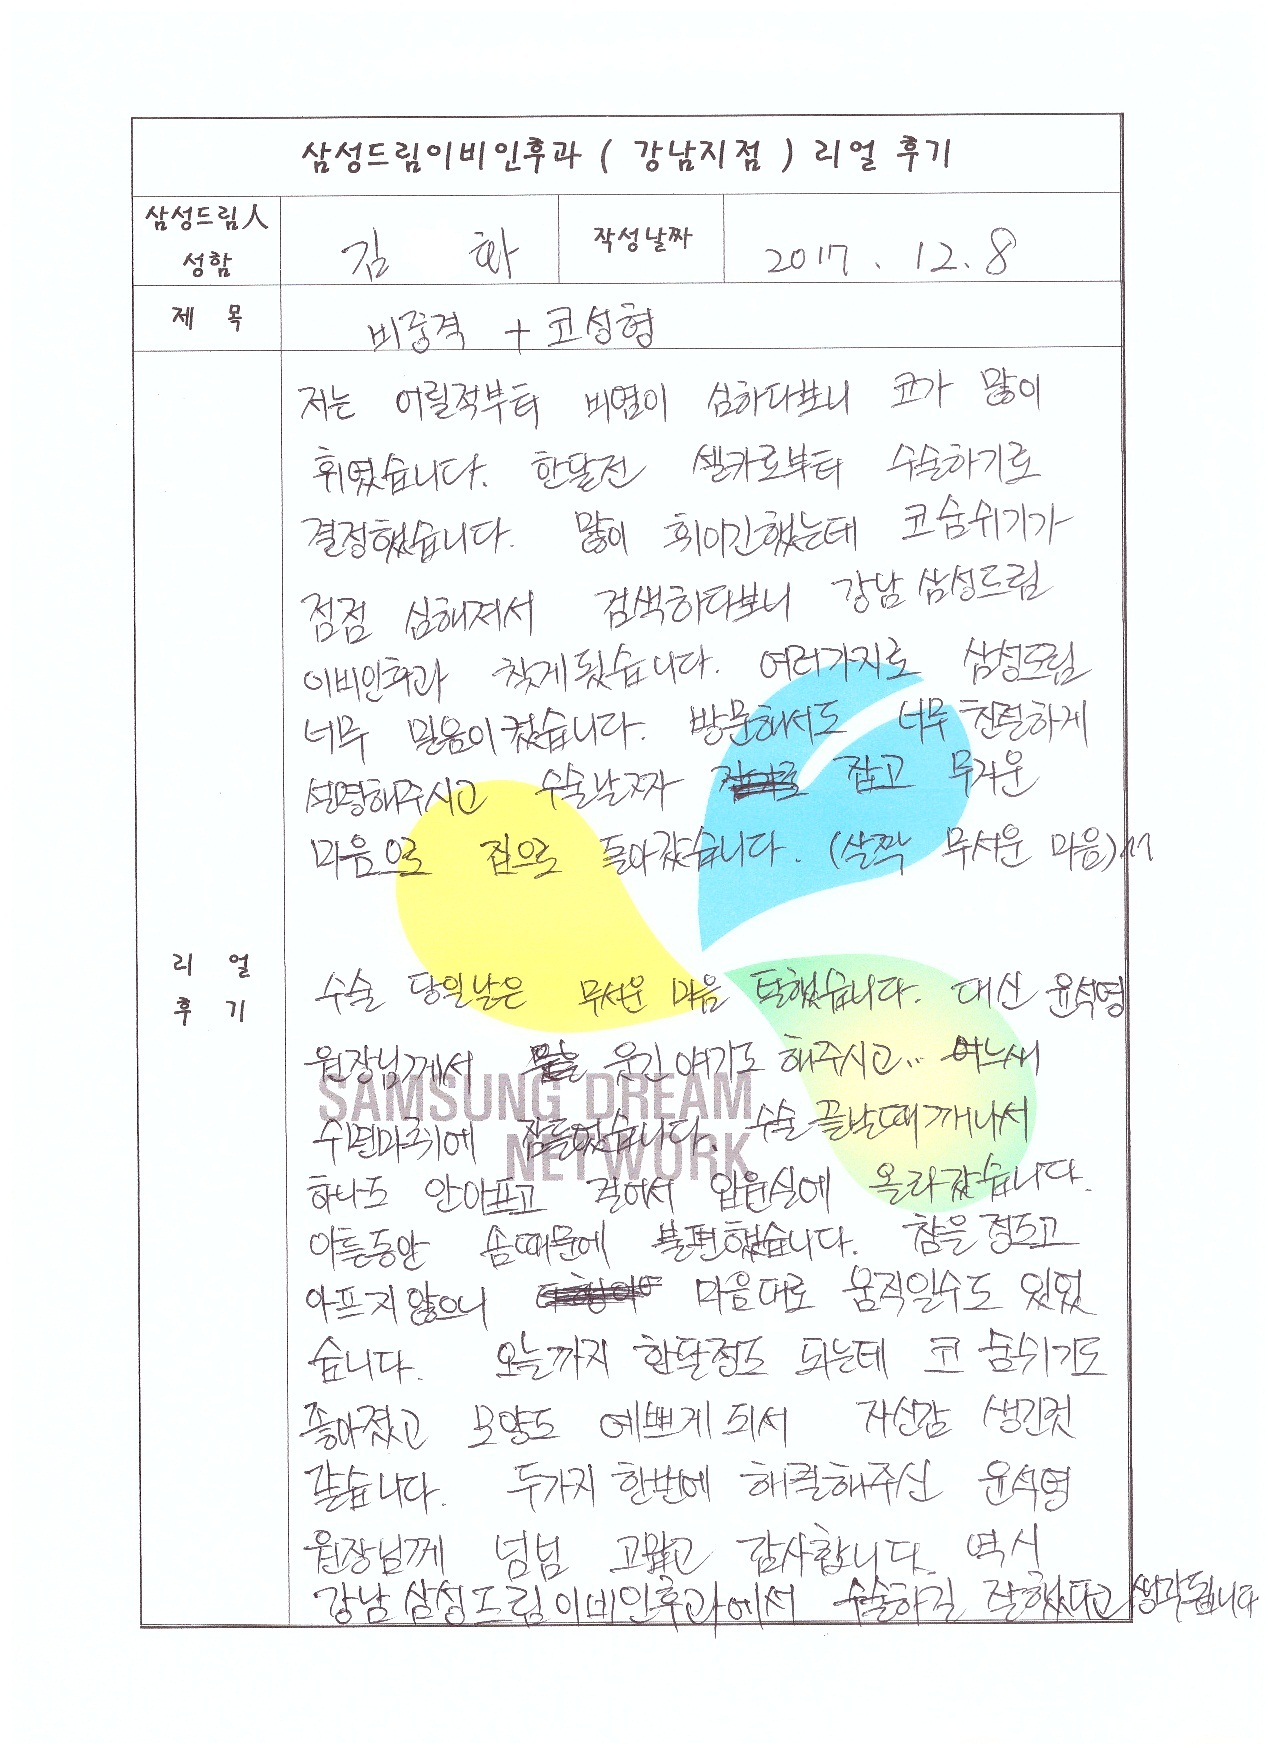 삼성드림이비인후과 ( 강남지점 ) 리얼 후기
삼성드림人 성함
김 화
작성날짜
2017. 12. 8
제 목
비중격 + 코성형
리 얼
후 기
저는 어릴적부터 비염이 심하다보니 코가 많이
휘였습니다. 한달전 셀카로부터 수술하기로
결정했습니다. 많이 휘이긴했는데 코숨쉬기가
점점 심해져서 검색하다보니 강남 삼성드림
이비인후과 찾게됬습니다. 여러가지로 삼성드림
너무 믿음이 컸습니다. 방문해서도 너무 친절하게
설명해주시고 수술날짜 잡고 무거운
마음으로 집으로 돌아갔습니다. (살짝 무서운 마음)
수술 당일날은 무서운 마음 탁했습니다. 대신 윤석영
원장님께서 웃긴 얘기도 해주시고.. 어느새
수면마취에 잠들었습니다. 수술 끝날때 깨나서
하나도 안아프고 걸어서 입원실에 올라갔습니다.
이틀동안 솜때문에 불편했습니다. 참을 정도고
아프지 않으니 마음대로 움직일수도 있었
습니다. 오늘까지 한달정도 되는데 코 숨쉬기도
좋아졌고 모양도 예쁘게 되서 자신감 생긴것
같습니다. 두가지 한번에 해결해주신 윤석영
원장님께 넘넘 고맙고 감사합니다. 역시
강남 삼성드림이비인후과에서 수술하길 잘했다고 생각됩니다
SAMSUNG DREAM
NETWORK